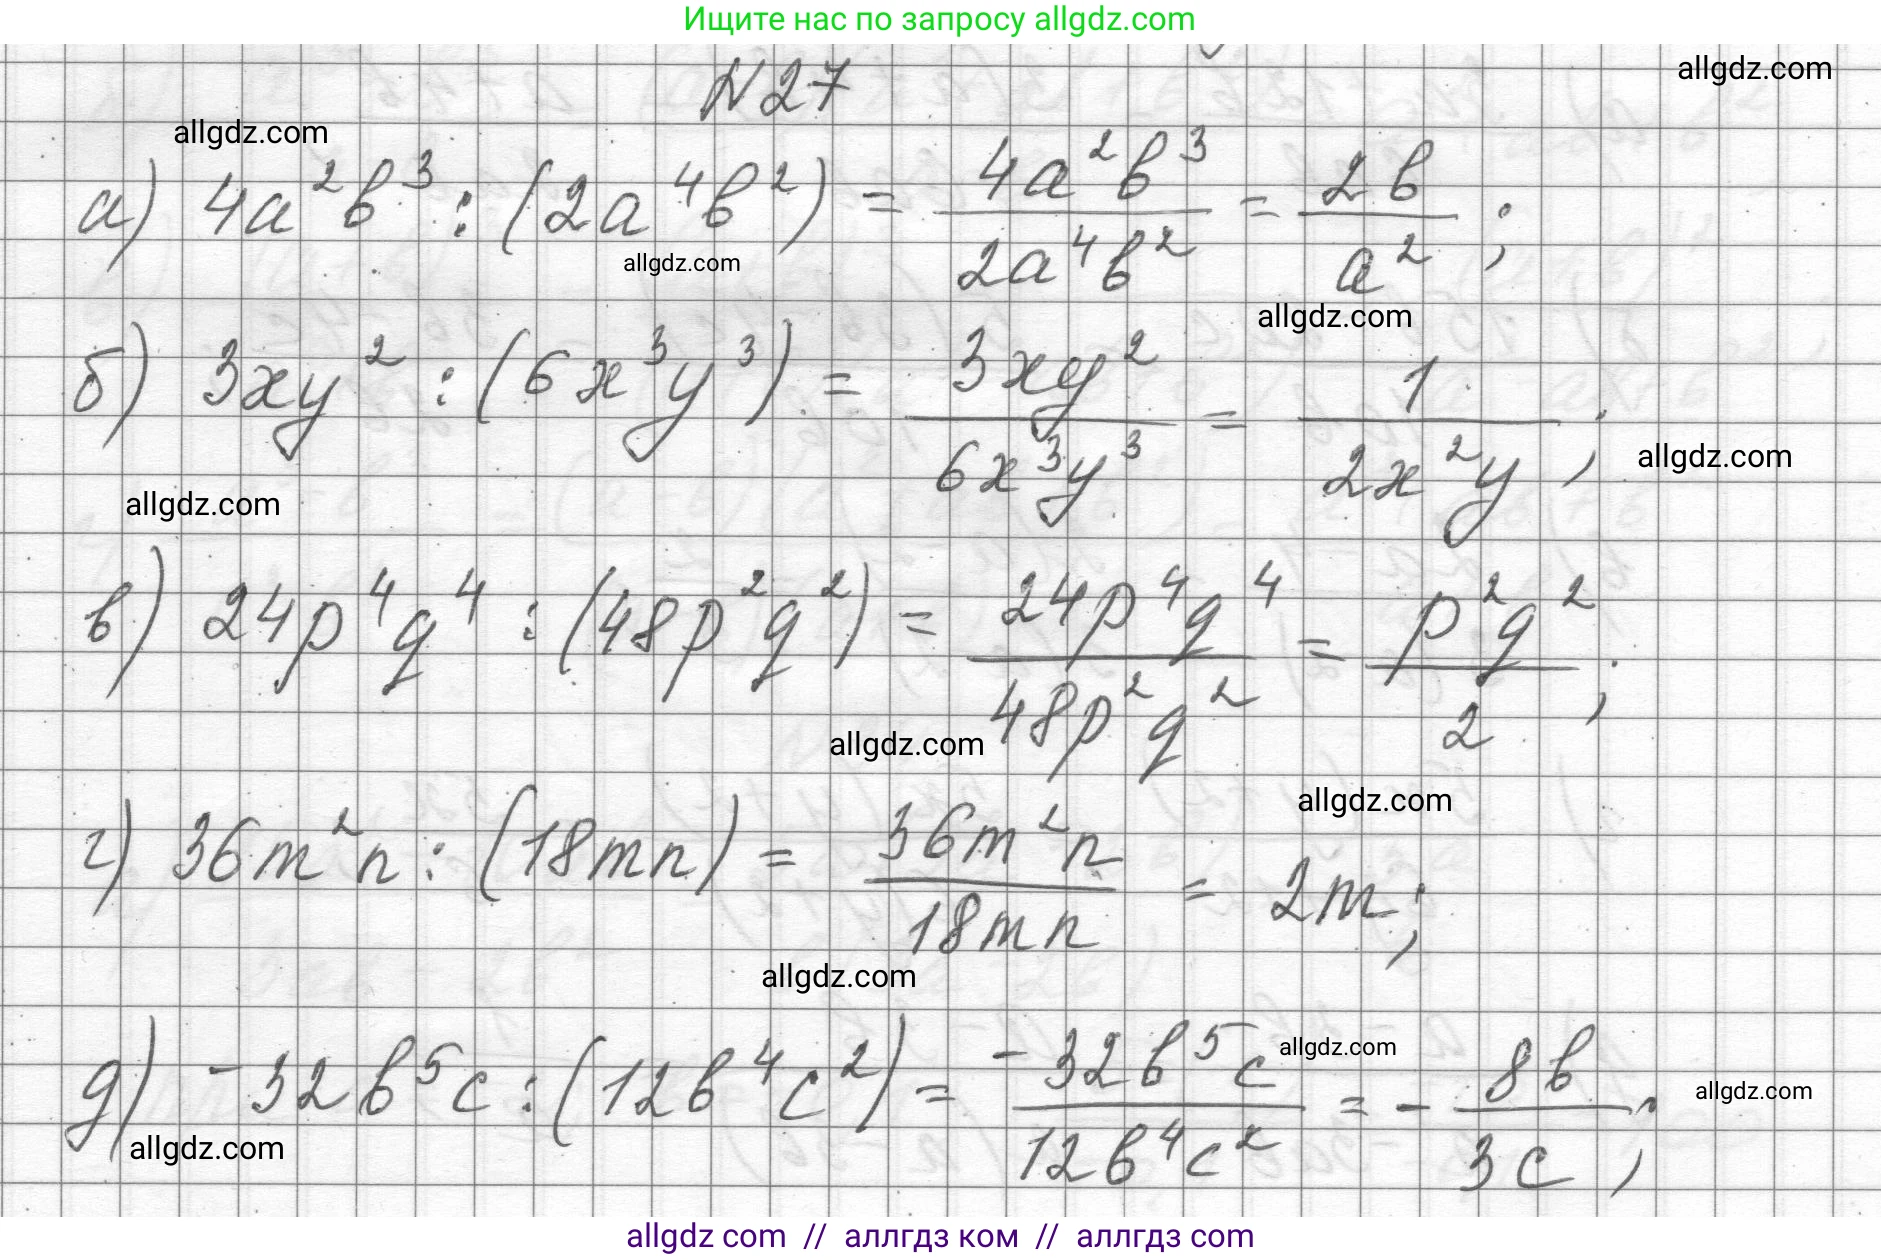 Ищите нас по запросу allgdz.com
№27
allgdz.com
allgdz.com
а) 4a²b³ : (2a⁴b²) = 4a²b³/2a⁴b² = 2b/a² ;
allgdz.com
allgdz.com
б) 3xy² : (6x³y³) = 3xy²/6x³y³ = 1/2x²y ;
allgdz.com
allgdz.com
в) 24p⁴q⁴ : (48p²q²) = 24p⁴q⁴/48p²q² = p²q²/2 ;
allgdz.com
allgdz.com
г) 36m²n : (18mn) = 36m²n/18mn = 2m;
allgdz.com
allgdz.com
д) -32b⁵c : (12b⁴c²) = -32b⁵c/12b⁴c² = - 8b/3c ;
allgdz.com
allgdz.com
allgdz com // аллгдз ком // аллгдз com